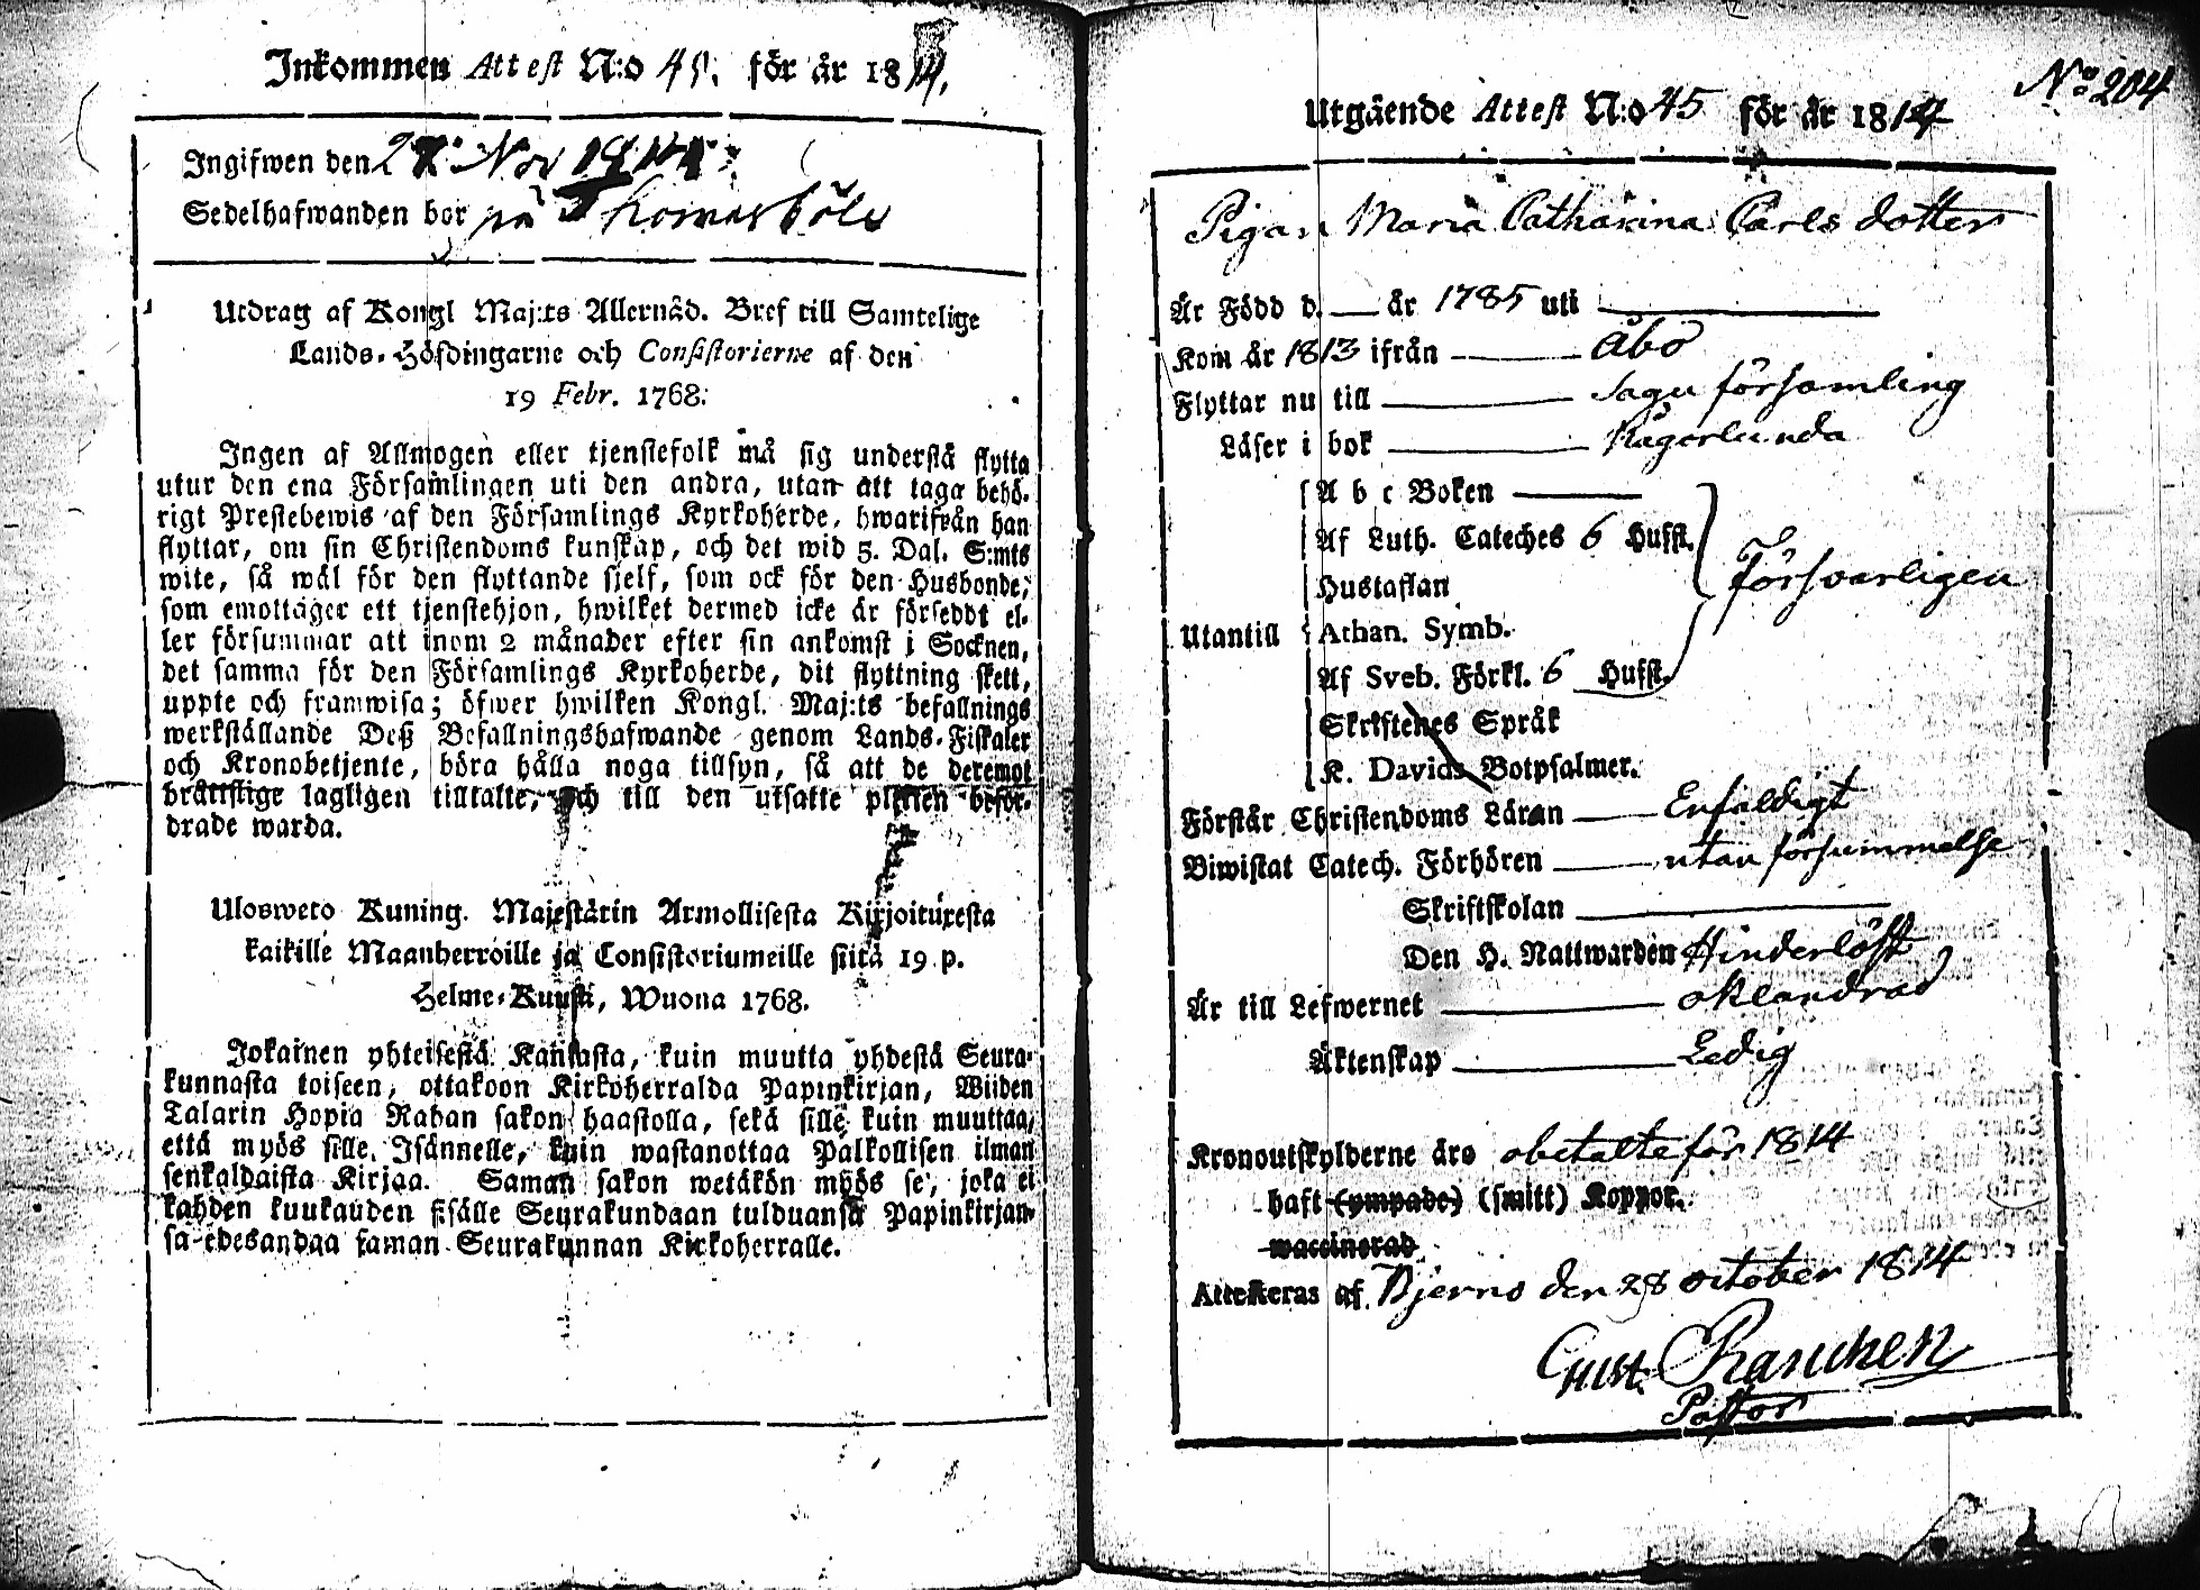 Inkommen Attest N:o 45. för år 1814.
Ingifwen den 27 Nov 1814
Sedelhafwanden bor på Thomasböle
Utdrag af Kongl Maj:ts Allernåd. Bref till Samtelige
Lands-Höfdingarne och Consistorierne af den
19 Febr. 1768.
Ingen af Allmogen eller tjenstefolk må sig understå flytta
utur den ena Församlingen uti den andra, utan att taga behö-
rigt Prestebewis af den Församlings Kyrkoherde, hwarifrån han
flyttar, om sin Christendoms kunskap, och det wid 5. Dal. S:mts
wite, så wäl för den flyttande sjelf, som ock för den Husbonde,
som emottager ett tjenstehjon, hwilket dermed icke är förseddt el-
ler försummar att inom 2 månader efter sin ankomst i Socknen,
det samma för den Församlings Kyrkoherde, dit flyttning skett,
uppte och framwisa; öfwer hwilken Kongl. Maj:ts befallnings
werkställande Deß Befallningshafwande genom Lands-Fiskaler
och Kronobetjente, böra hålla noga tillsyn, så att de deremot
bråttslige lagligen tilltalte, och till den utsatte plikten beför-
drade warda.
Ulosweto Kuning. Majestätin Armollisesta Kirjoituxesta
kaikille Maanherroille ja Consistoriumeille siitä 19 p.
Helme-Kuusa, Wuona 1768.
Jokainen yhteisestä Kansasta, kuin muutta yhdestä Seura-
kunnasta toiseen, ottakoon Kirkoherralda Papinkirjan, Wiiden
Talarin Hopia Rahan sakon haastolla, sekä sille kuin muuttaa,
että myös sille Isännelle, kuin wastanottaa Palkollisen ilman
senkaldaista Kirjaa. Saman sakon wetäkön myös se, joka ei
kahden kuukauden sisälle Seurakundaan tulduansa Papinkirjan-
sa edesandaa saman Seurakunnan Kirkoherralle.
No 204
Utgående Attest N:o 45 för år 1814
Pigan Maria Catharina Carls dotter
Är Född d. — år 1785 uti —
Kom år 1813 ifrån — Åbo
Flyttar nu till — Sagu församling
Läser i bok — Någorlunda
A b c Boken —
Af Luth. Cateches 6 Hufst.
Hustaflan
Försvarligen
Utantill Athan. Symb.
Af Sveb. Förkl. 6 Hufst.
Skriftenes Språk
K. Davids Botpsalmer.
Förstår Christendoms Läran — Enfaldigt
Biwistat Catech. Förhören — utan försummelse
Skriftskolan —
Den H. Nattwarden Hinderlöst
Är till Lefwernet — oklandrad
Äktenskap — Ledig
Kronoutskylderne äro obetalte för 1814
haft (ympade) (smitt) Koppor.
waccinerad
Attesteras af Bjerno den 28 october 1814
Gust. Rancken
Pastor